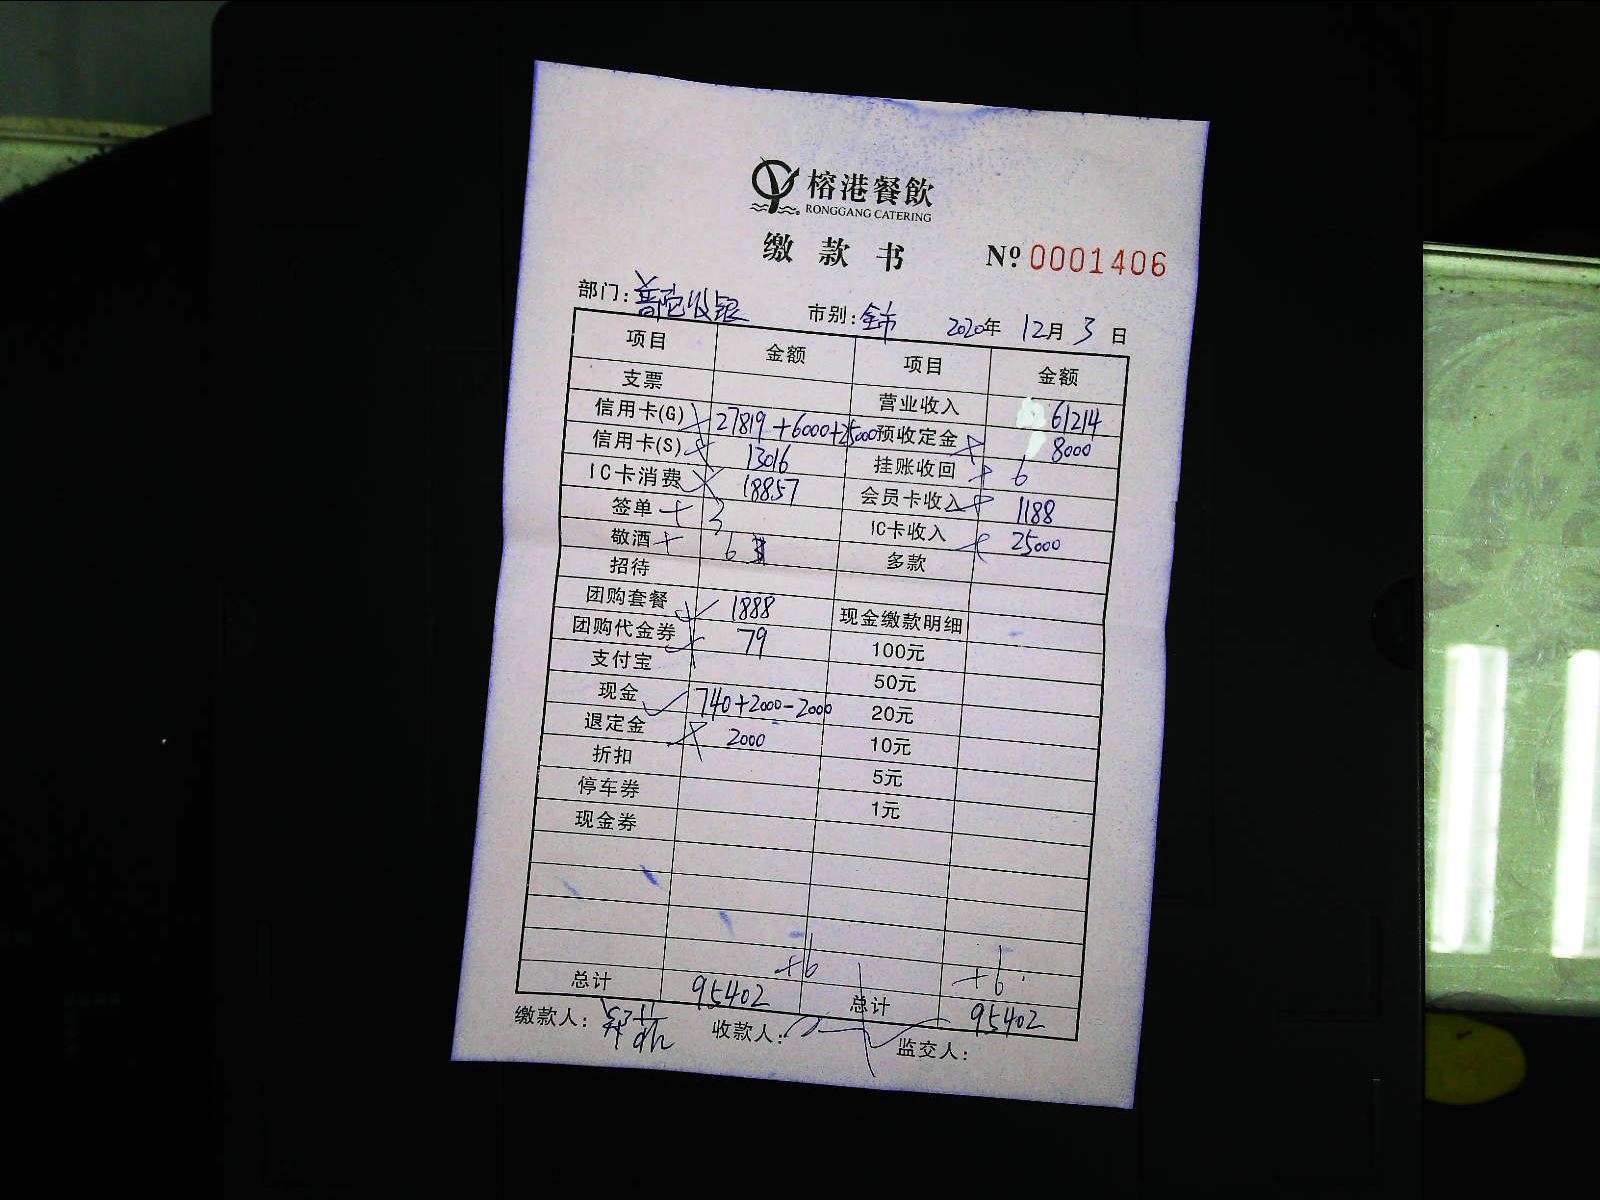 榕港餐飲
RONGGANG CATERING
缴款书 Nº 0001406
部门: 普陀收银 市别: 全市 2020年 12月 3日
项目 金额 项目 金额
支票 营业收入 61214
信用卡(G) 27819+6000+25000 预收定金 8000
信用卡(S) 13016 挂账收回 6
IC卡消费 18857 会员卡收入 1188
签单 3 IC卡收入 25000
敬酒 6 多款
招待
团购套餐 1888 现金缴款明细
团购代金券 79 100元
支付宝 50元
现金 740+2000-2000 20元
退定金 2000 10元
折扣 5元
停车券 1元
现金券
+6 +6
总计 95402 总计 95402
缴款人: 收款人: 监交人: